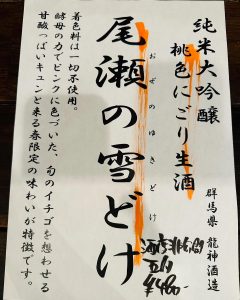 純米大吟醸
桃色にごり生酒
群馬県 龍神酒造
おぜのゆきどけ
尾瀬の雪どけ
着色料は一切不使用。
酵母の力でピンクに色づいた、旬のイチゴを想わせる
甘酸っぱいキュンと来る春限定の味わいが特徴です。